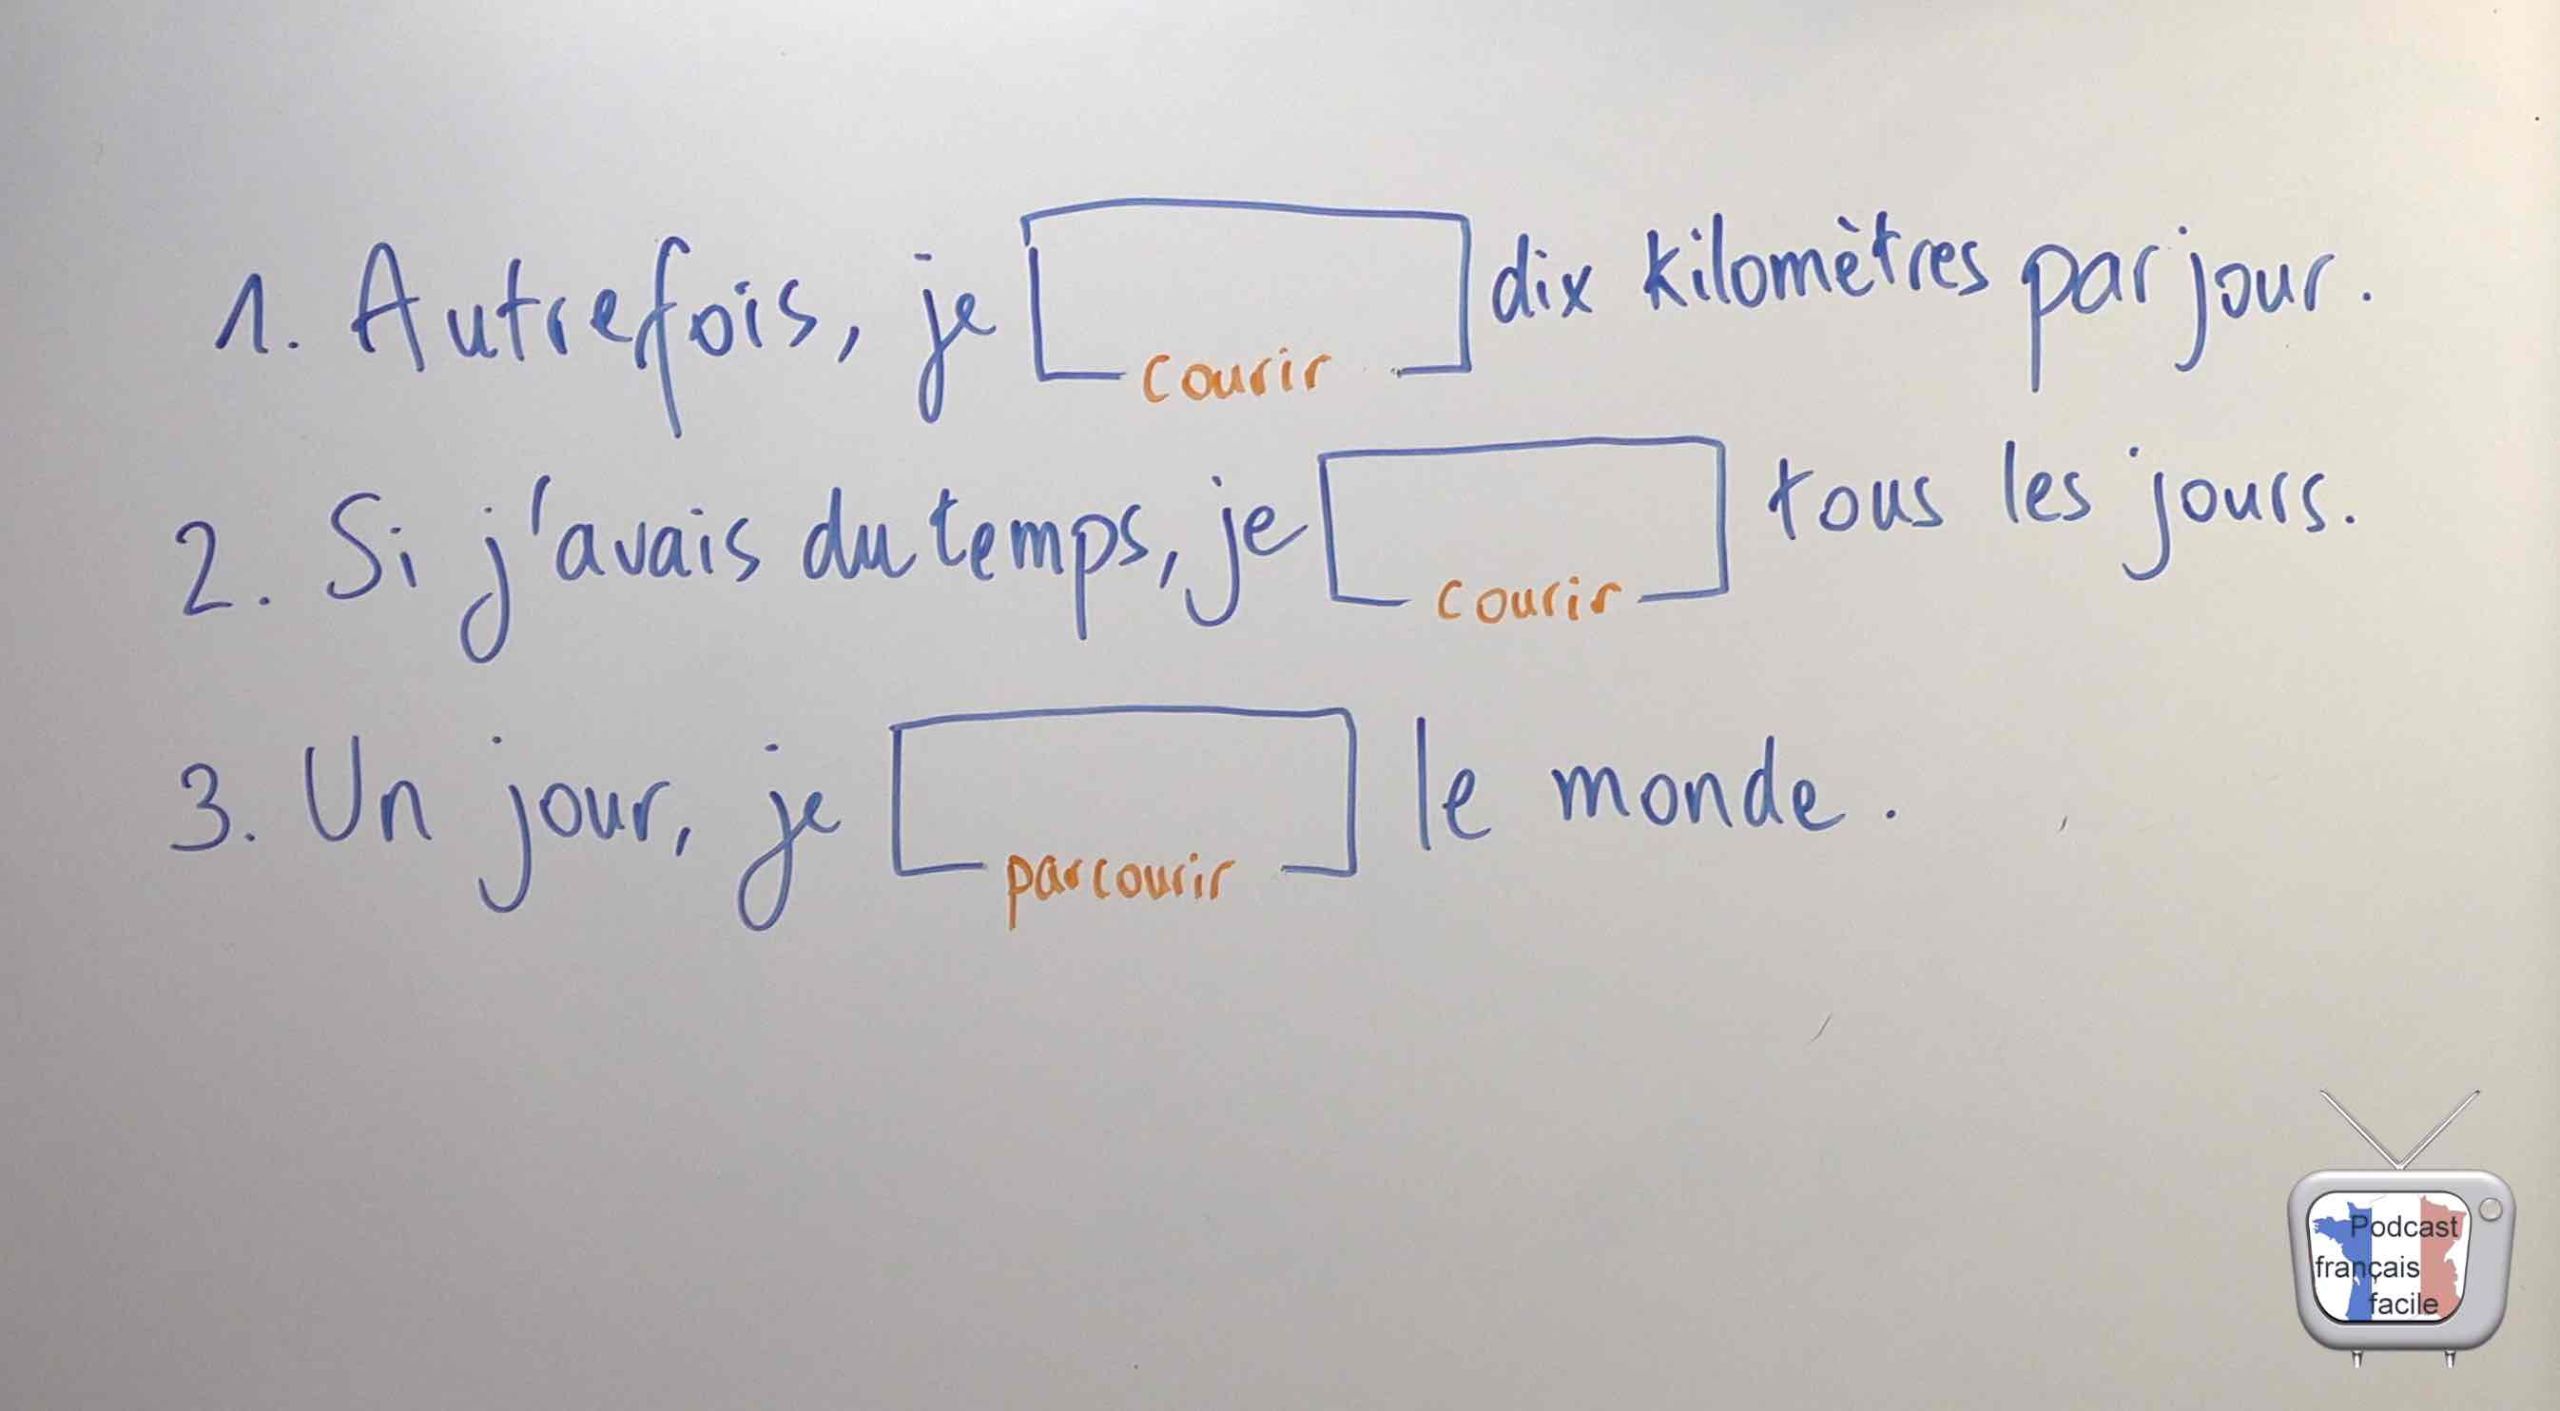 1. Autrefois, je dix kilomètres par jour.
courir
2. Si j'avais du temps, je tous les jours.
courir
3. Un jour, je le monde.
parcourir
Podcast
français
facile